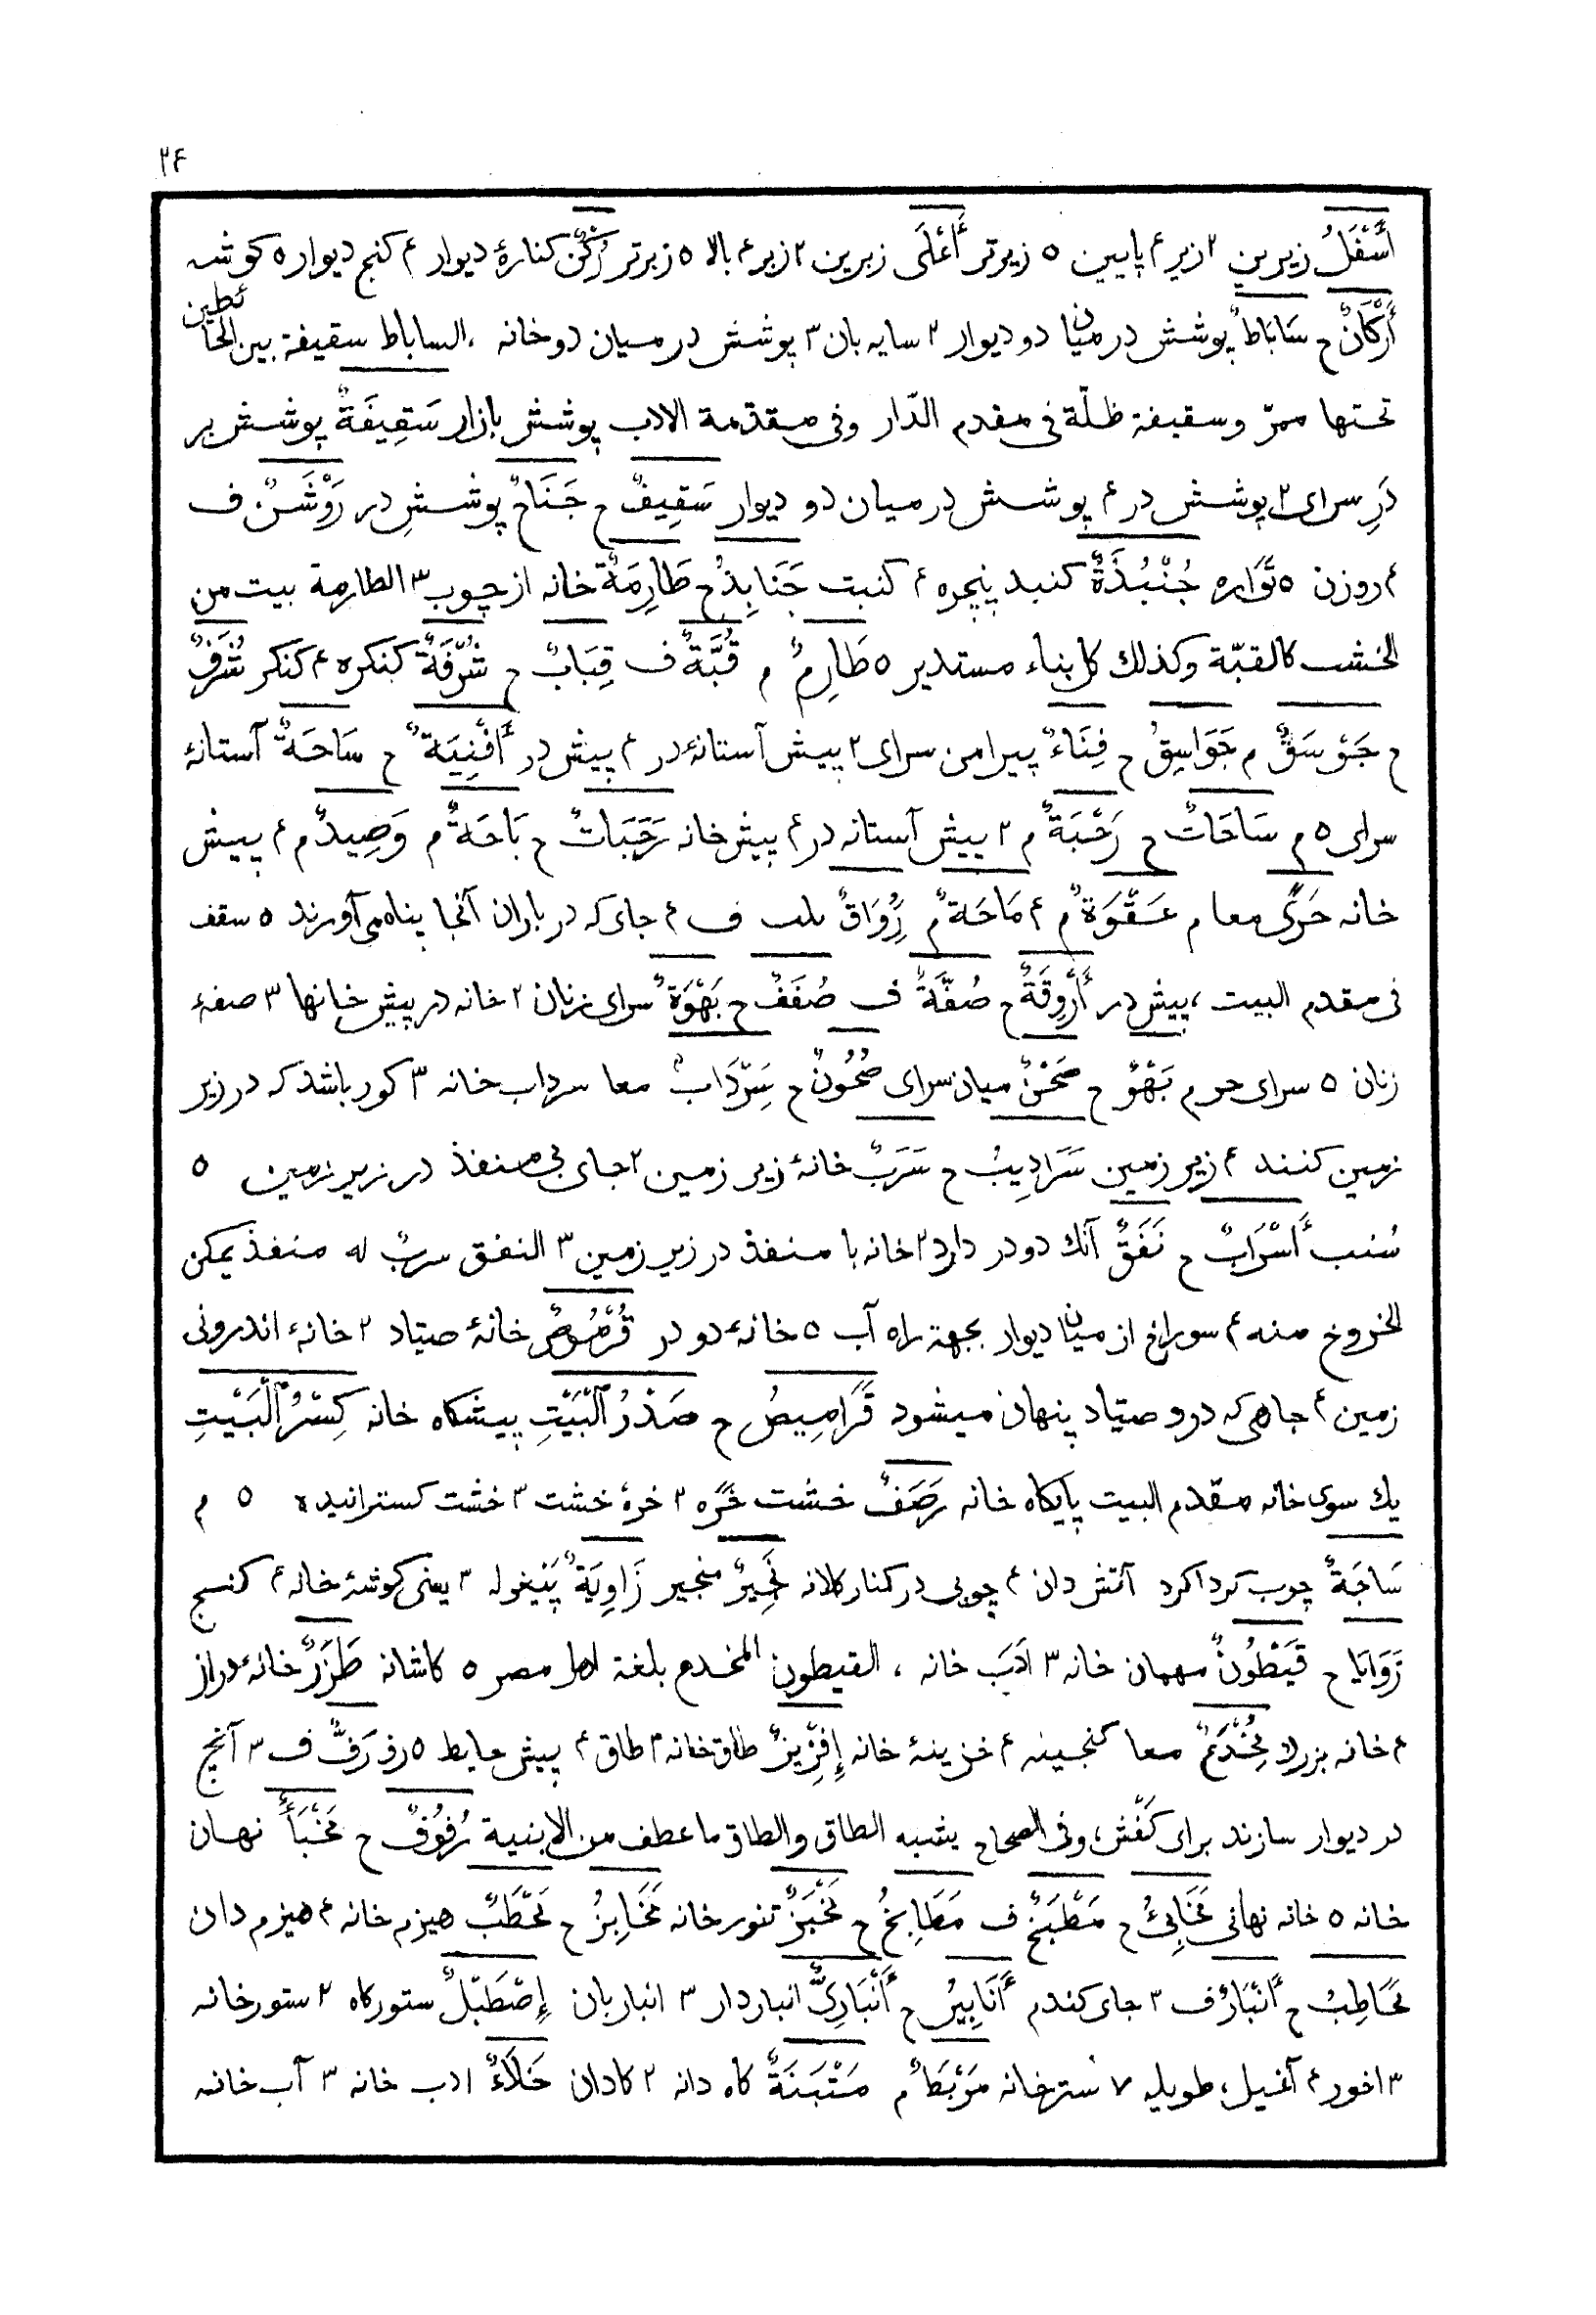 ۲۴
أَسْفَلُ زیرین ۲ زیر ۴ پایین ۵ زیرتر أَعْلَى زبرین ۲ زبر ۴ بالا ۵ زبرتر رُكْنٌ كنارهٔ دیوار ۴ كنج دیوار ۵ كوشه
أَرْكَانٌ ح سَابَاطٌ پوشش در میان دو دیوار ۲ سایه بان ۳ پوشش در میان دو خانه ، الساباط سقیفة بین الحائطین
تحتها ممرّ وسقیفة ظلّة فی مقدم الدّار وفی مقدّمة الادب پوشش بازار سَقِيفَةٌ پوشش بر
دَرِ سرای ۲ پوشش در ۴ پوشش در میان دو دیوار سَقِيفٌ ح جَنَاحٌ پوششِ در رَوْشَنٌ ف
۴ روزن ۵ تَوَاره جُنْبُذَةٌ كنبد پنجره ۴ كنبت جَنَابِذُ ح طَارِمَةٌ خانه از چوب ۳ الطارمة بیت من
الخشب كالقبّة وكذلك كل بناء مستدیر ۵ طَارِمٌ م قُبَّةٌ ف قِبَابٌ ح شُرْفَةٌ كنكره ۴ كنكر شُرَفٌ
ح جَوْسَقٌ م جَوَاسِقُ ح فِنَاءٌ پیرامن سرای ۲ پیش آستانهٔ در ۴ پیش در أَفْنِيَةٌ ح سَاحَةٌ آستانهٔ
سرای ۵ م سَاحَاتٌ ح رَحْبَةٌ م ۲ پیش آستانه در ۴ پیش خانه رَحَبَاتٌ ح بَاحَةٌ م وَصِيدٌ م ۴ پیش
خانه حَرًى معا م عَقْوَةٌ م ۴ مَاحَةٌ م رُِوَاقٌ ف ۴ جای كه در باران آنجا پناه می آورند ۵ سقف
فی مقدم البیت ، پیش در أَرْوِقَةٌ ح صُفَّةٌ ف صُفَفٌ ح بَهْوَةٌ سرای زنان ۲ خانه در پیش خانها ۳ صفهٔ
زنان ۵ سرای حرم بَهْوٌ ح صَحْنٌ میان سرای صُحُونٌ ح سَِرْدَابٌ معا سرداب خانه ۳ كور باشد كه در زیر
زمین كنند ۴ زیر زمین سَرَادِيبُ ح سَرَبٌ خانهٔ زیر زمین ۲ جای بی منفذ در زیر زمین ۵
سُنب أَسْرَابٌ ح نَفَقٌ آنك دو در دارد ۲ خانه با منفذ در زیر زمین ۳ النفق سربٌ له منفذ یمكن
الخروج منه ۴ سوراخ از میان دیوار بجهة راه آب ۵ خانهٔ دو در قُرْمُوصٌ خانهٔ صیّاد ۲ خانهٔ اندرونی
زمین ۴ جاهی كه درو صیّاد پنهان میشود قَرَامِيصُ ح صَدْرُ ٱلْبَيْتِ پیشكاه خانه كِسْرُ ٱلْبَيْتِ
یك سوی خانه مقدم البیت پایكاه خانه رَصَفٌ خشت خَرّه ۲ خرهٔ خشت ۳ خشت كسترانیده ۵ م
سَاجَةٌ چوب كرداكرد آتش دان ۴ چوبی در كنار كلانه نَجِيرٌ منجیر زَاوِيَةٌ پَیغوله ۳ یعنی كوشهٔ خانه ۴ كنج
زَوَايَا ح قَيْطُونٌ مهمان خانه ۳ ادَب خانه ، القیطون المخدع بلغة اهل مصر ۵ كاشانه طَزَرٌ خانهٔ دراز
۴ خانه بزرك مُِخْدَعٌ معا كنجینه ۴ خزینهٔ خانه إِفْرِيزٌ طاق خانه ۲ طاق ۴ پیش حایط ۵ رف رَفٌّ ف ۳ آنچ
در دیوار سازند برای كَفش ، وفی الصحاح یشبه الطاق والطاق ما عطف من الابنیة رُفُوفٌ ح مَخْبَأٌ نهان
خانه ۵ خانه نهانی مَخَابِئُ ح مَطْبَخٌ ف مَطَابِخُ ح مَخْبَزٌ تنور خانه مَخَابِزُ ح مَحْطَبٌ هیزم خانه ۴ هیزم دان
مَحَاطِبُ ح أَنْبَارٌ ف ۳ جای كندم أَنَابِيرُ ح أَنْبَارِيٌّ انباردار ۳ انباربان إِصْطَبْلٌ ستوركاه ۲ ستورخانه
۳ اخور ۴ آغیل ، طویله ۷ سترخانه مَرْبَطٌ م مَتْبَنَةٌ كاه دانه ۲ كادان خَلَاءٌ ادب خانه ۳ آب خانه